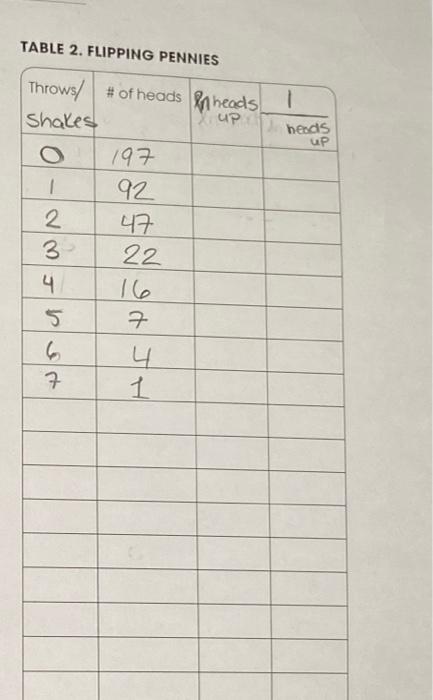 TABLE 2. FLIPPING PENNIES
Throws/ # of heads ln heads 1
Shakes up heads
up
0 197
1 92
2 47
3 22
4 16
5 7
6 4
7 1